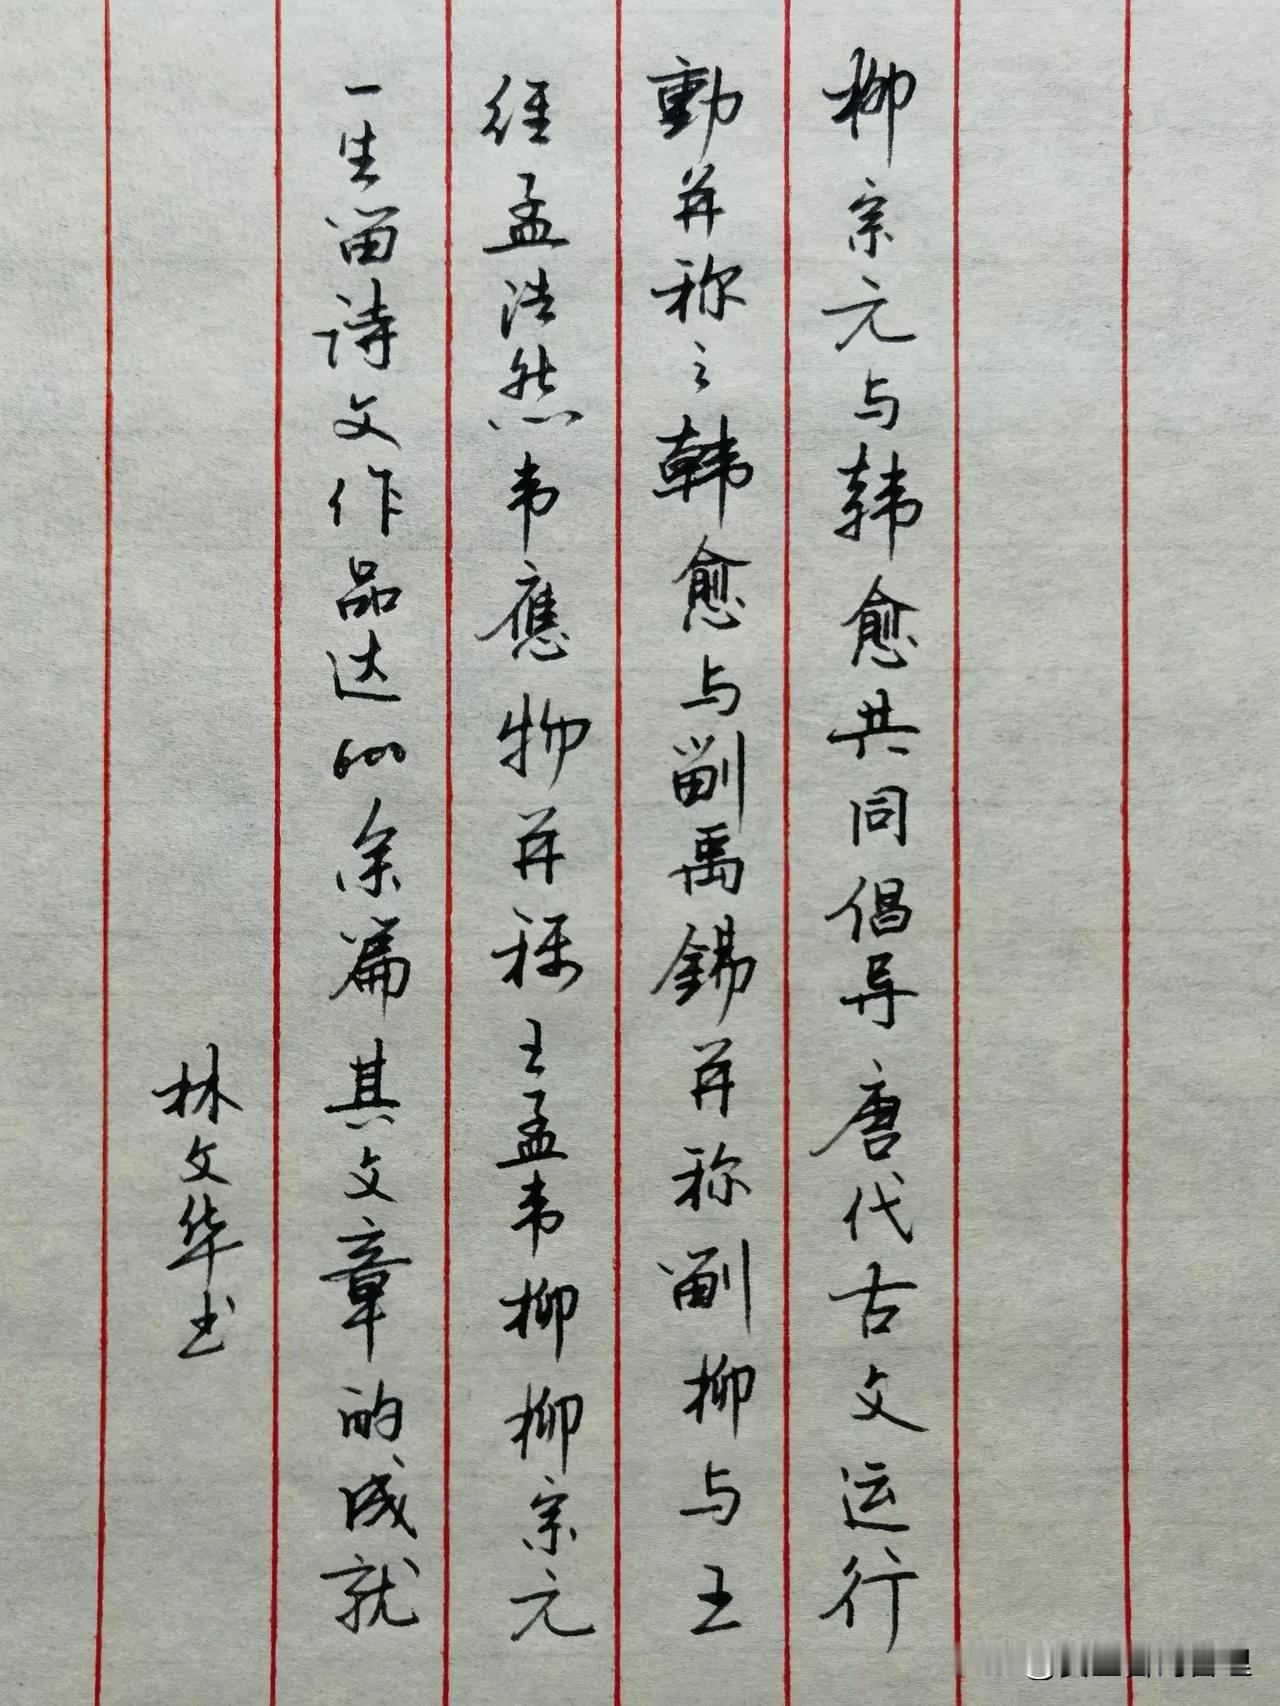 柳宗元与韩愈共同倡导唐代古文运行
動并称之韩愈与劉禹錫并称劉柳与王
维孟浩然韦應物并称王孟韦柳柳宗元
一生留诗文作品达600余篇其文章的成就
林文华书